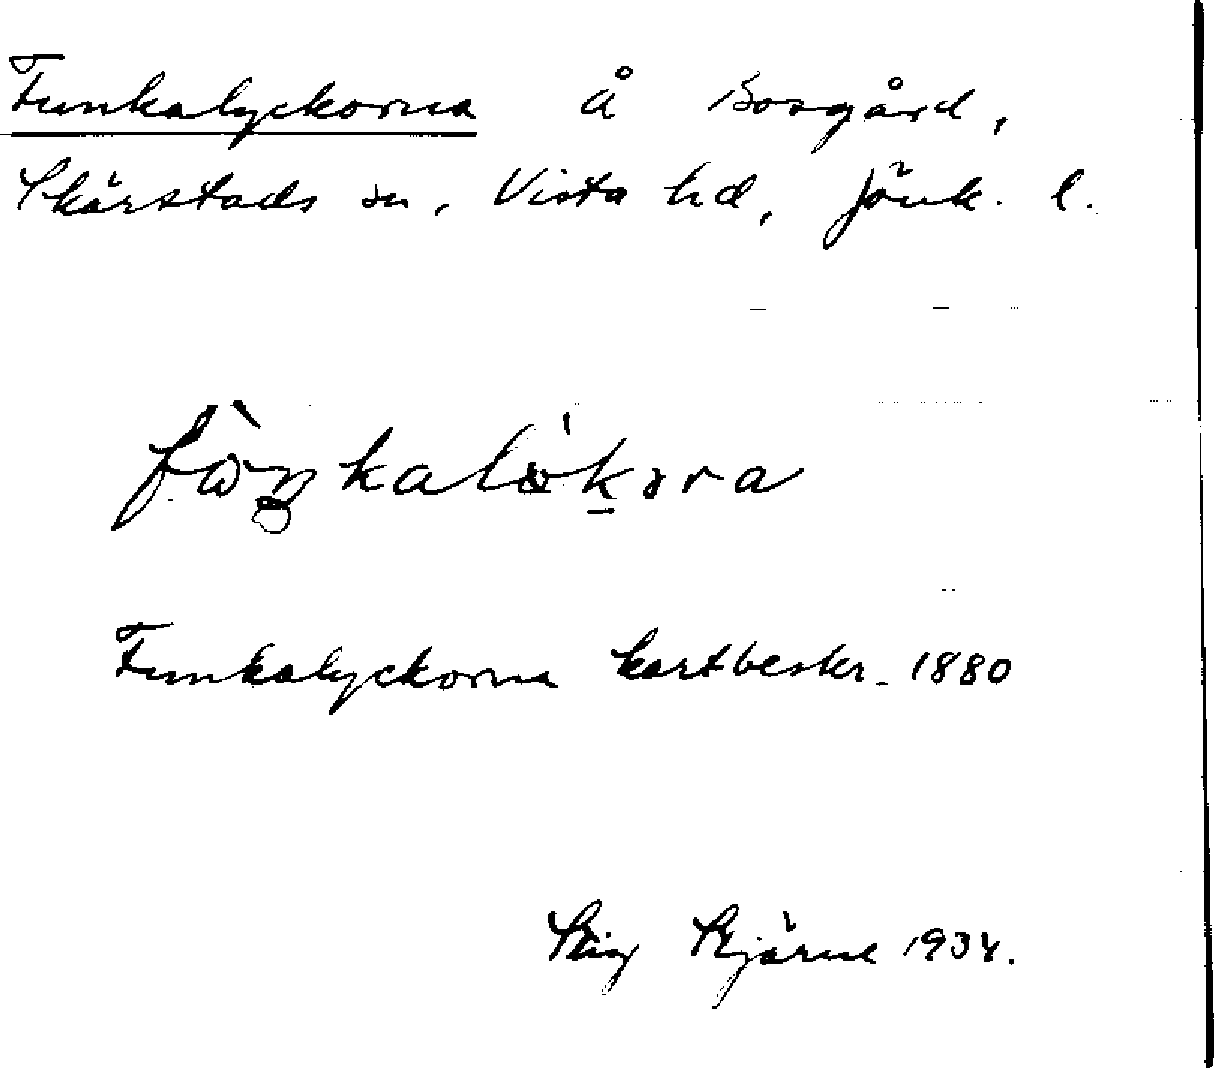 Funkalyckorna å Bosgård,
Skärstads sn, Vista hd, Jönk. l.
Funkalyckorna kartbeskr. 1880
Stig 1934.